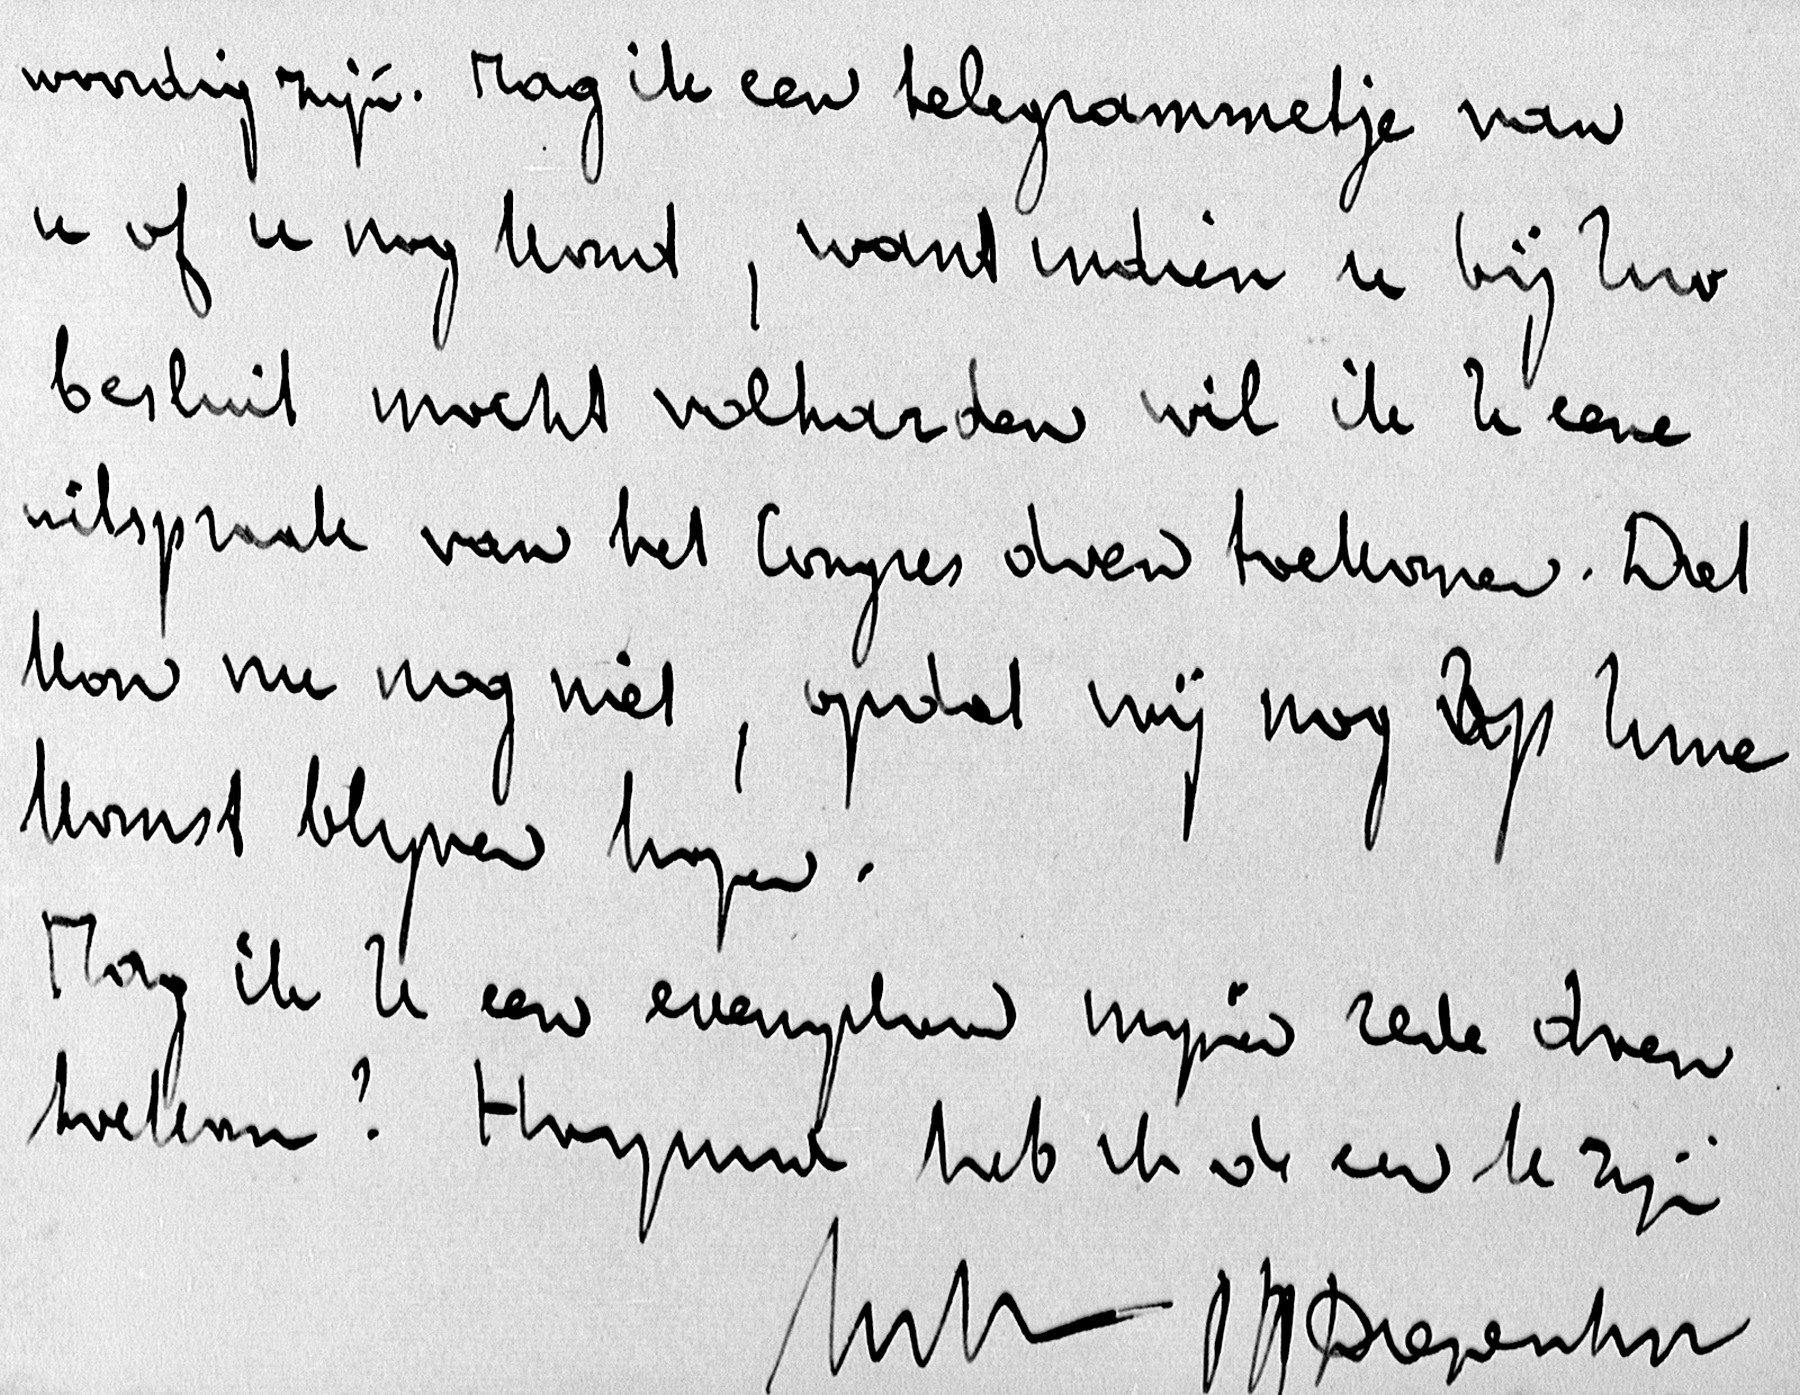 woordig zijn. Mag ik een telegrammetje van
u of u nog komt, want indien u bij Uw
besluit mocht volharden wil ik U eene
uitspraak van het Congres doen toekomen. Dat
kon nu nog niet, opdat wij nog op Uwe
komst blijven hopen.
Mag ik U een exemplaar mijner rede doen
toekomen? Hoogachtend heb ik de eer te zijn